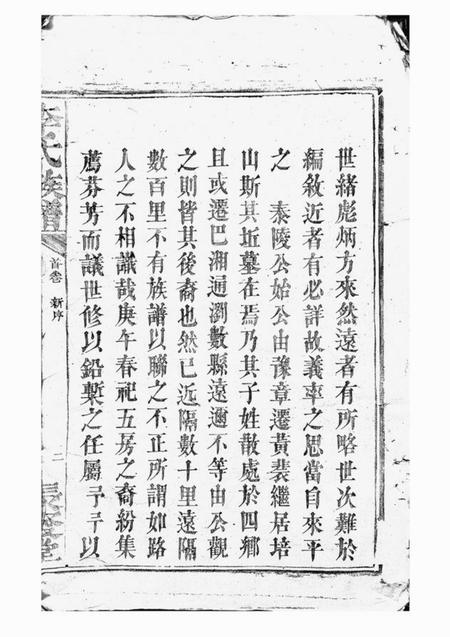 世緒彪炳方來然遠者有所略世次難於
編敘近者有必詳故義率之思當自來平
之　泰陵公始公由豫章遷黃裴繼居培
山斯其坵墓在焉乃其子姓散處於四鄉
且或遷巴湘通瀏數縣遠邇不等由公觀
之則皆其後裔也然已近隔數十里遠隔
數百里不有族譜以聯之不正所謂如路
人之不相識哉庚午春祀五房之裔紛集
薦芬芳而議世修以鉛槧之任屬予予以
李氏族譜
首卷　新序
二